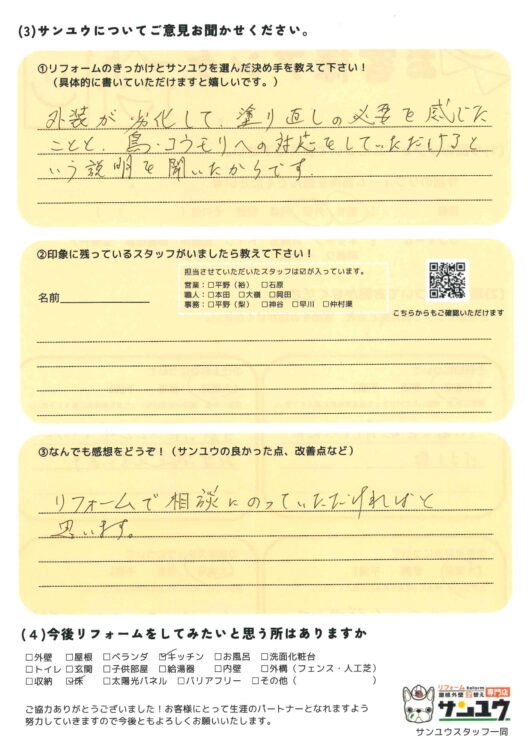 (3)サンユウについてご意見お聞かせください。
①リフォームのきっかけとサンユウを選んだ決め手を教えて下さい!
(具体的に書いていただけますと嬉しいです。)
外装が劣化して、塗り直しの必要を感じた
ことと、鳥・コウモリへの対応をしていただけると
いう説明を聞いたからです。
②印象に残っているスタッフがいましたら教えて下さい!
担当させていただいたスタッフは☑が入っています。
営業:□平野(裕) □石原
職人:□本田 □大嶺 □岡田
事務:□平野(梨) □神谷 □早川 □仲村渠
名前
こちらからもご確認いただけます
③なんでも感想をどうぞ!(サンユウの良かった点、改善点など)
リフォームで相談にのっていただければと
思います。
(4)今後リフォームをしてみたいと思う所はありますか
□外壁 □屋根 □ベランダ ☑キッチン □お風呂 □洗面化粧台
□トイレ □玄関 □子供部屋 □給湯器 □内壁 □外構(フェンス・人工芝)
□収納 ☑床 □太陽光パネル □バリアフリー □その他( )
ご協力ありがとうございました!お客様にとって生涯のパートナーとなれますよう
努力していきますので今後ともよろしくお願いいたします。
リフォーム Reform
屋根外壁塗替え専門店
サンユウ
サンユウスタッフ一同